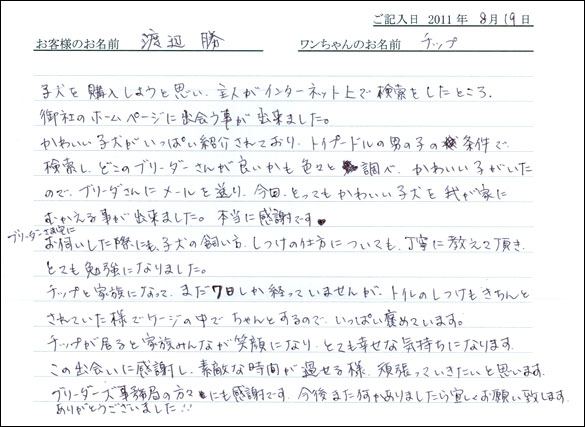 ご記入日 2011年 8月19日
お客様のお名前 渡辺 勝 ワンちゃんのお名前 チップ
子犬を購入しようと思い、主人がインターネット上で検索をしたところ、
御社のホームページに出会う事が出来ました。
かわいい子犬がいっぱい紹介されており、トイプードルの男の子の条件で
検索し、どこのブリーダーさんが良いかも色々と調べ、かわいい子がいた
ので、ブリーダさんにメールを送り、今回、とってもかわいい子犬を我が家に
むかえる事が出来ました。本当に感謝です
ブリーダーさま宅に
お伺いした際にも、子犬の飼い方、しつけの仕方についても、丁寧に教えて頂き、
とても勉強になりました。
チップと家族になって、まだ7日しか経っていませんが、トイレのしつけもきちんと
されていた様でケージの中でちゃんとするので、いっぱい褒めています。
チップが居ると家族みんなが笑顔になり、とても幸せな気持ちになります。
この出会いに感謝し、素敵な時間が過せる様、頑張っていきたいと思います。
ブリーダーズ事務局の方々にも感謝です。今後また何かありましたら宜しくお願い致します。
ありがとうございました!!